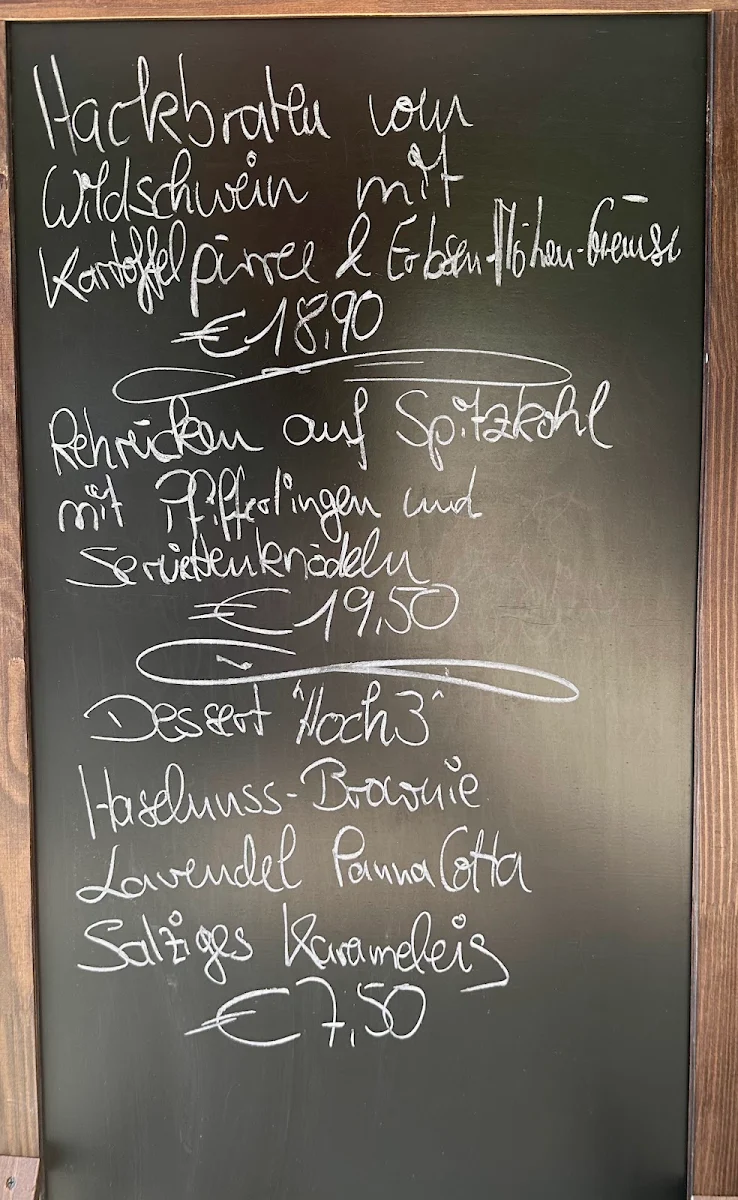 Hackbraten vom
Wildschwein mit
Kartoffelpürree & Erbsen-Möhren-Gemüse
€ 18,90
Rehrücken auf Spitzkohl
mit Pfifferlingen und
Serviettenknödeln
€ 19,50
Dessert "Hoch3"
Haselnuss-Brownie
Lavendel Panna Cotta
Salziges Karameleis
€ 7,50